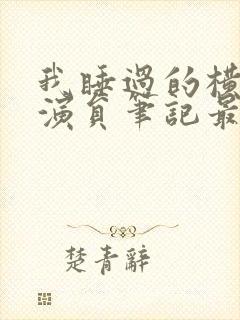 我睡過的橫
演員筆記最
楚青辭